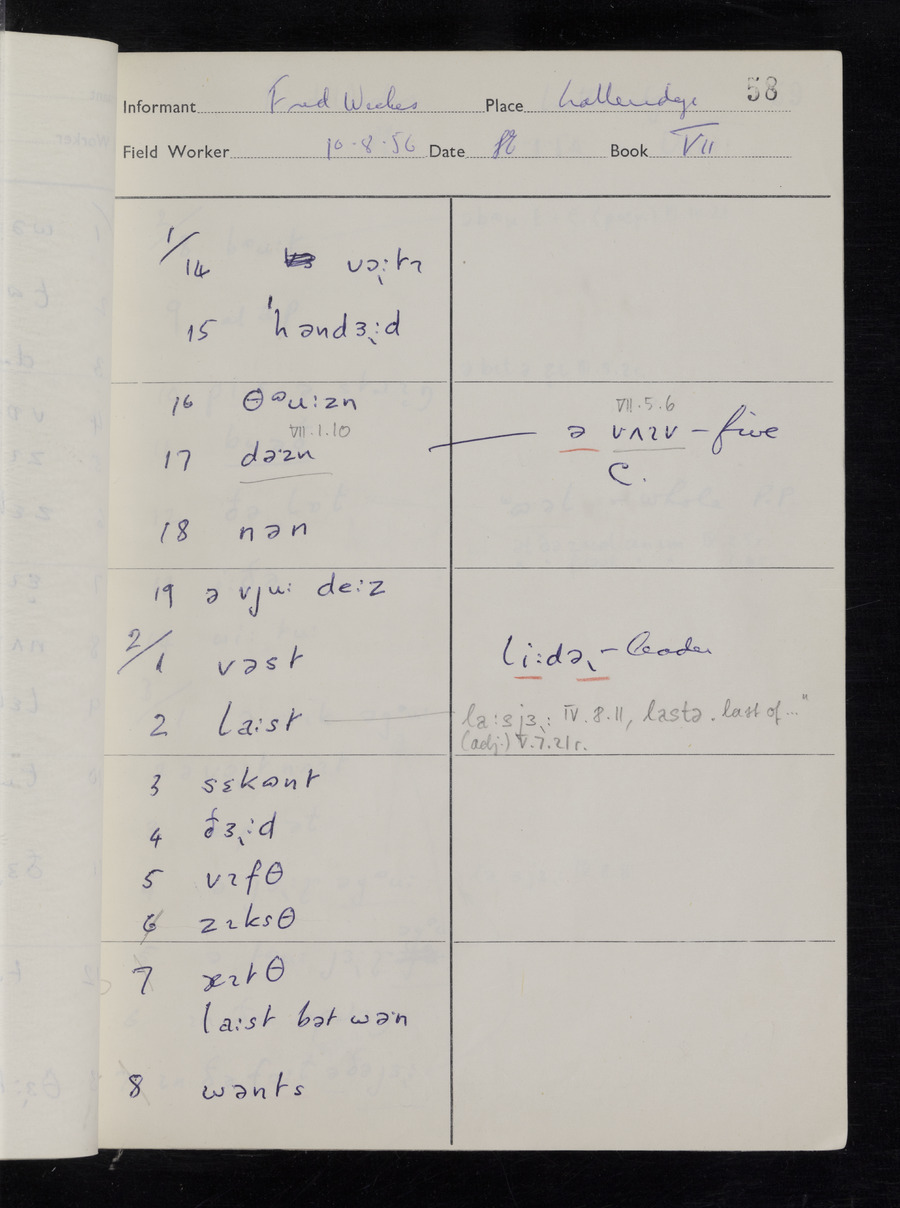 58
Informant Fred Place
Field Worker 10·8·56 Date Book VII
1/14 vəːtɪ
15 ˈhəndɜːd
16 θaʊːzn
VII.1.10
17 dəzn
VII.5.6
ə vʌɪv – five
C.
18 nən
19 ə vjuː deːz
2/1 vəst
liːdə – leader
2 laːst
IV.8.11, lastə. last of..."
(adj.) V.7.21r.
3 sɛkənt
4 ðɜːd
5 vɪfθ
6 zɪksθ
7 æɪtθ
laːst bət wən
8 wənts